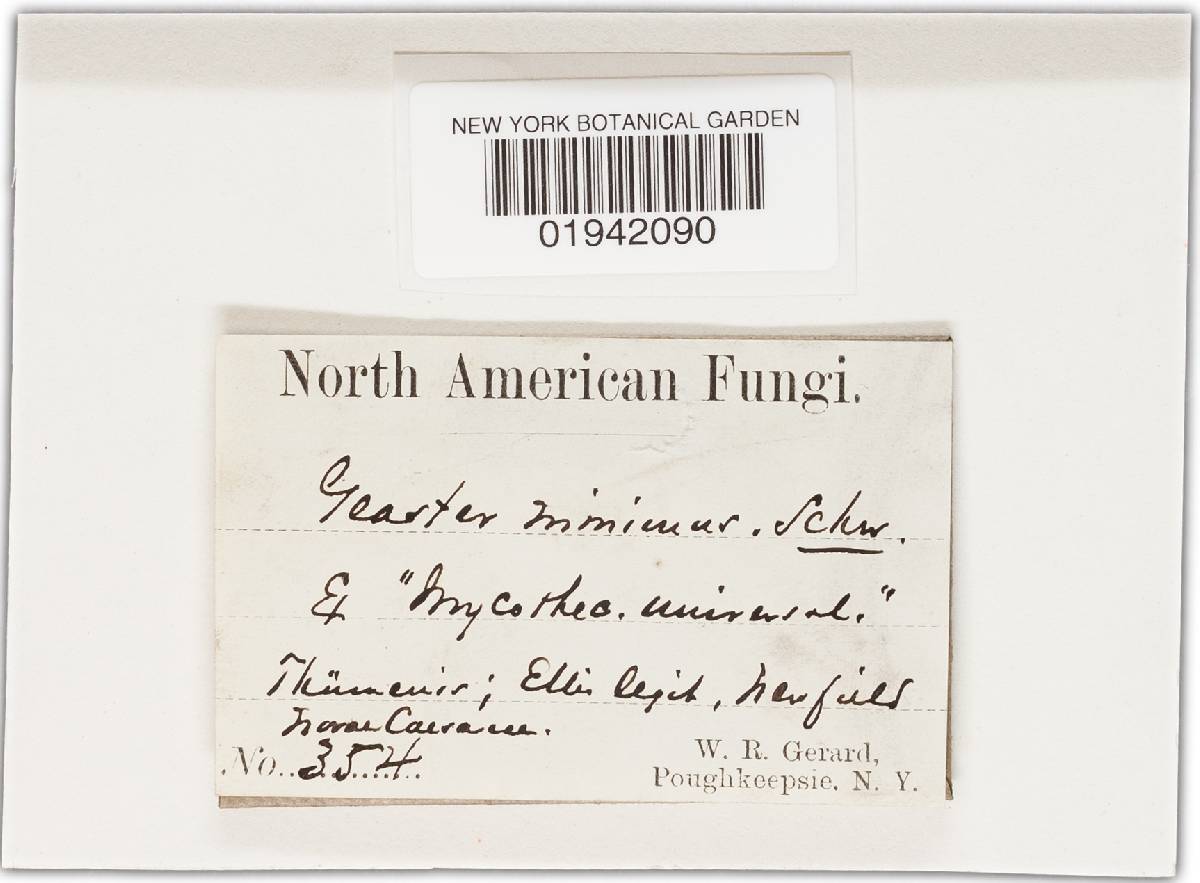 NEW YORK BOTANICAL GARDEN
01942090
North American Fungi.
Geaster minimus. Schw.
Ex "Mycothec. universal."
Thümenis; Ellis legit, Newfield
Novae Caesareae.
No. 354
W. R. Gerard,
Poughkeepsie, N. Y.